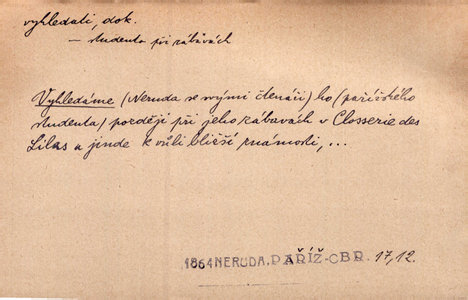 vyhledati, dok.
— studenta při zábavách
Vyhledáme (Neruda se svými čtenáři) ho (pařížského
studenta) později při jeho zábavách v Closserie des
Lilas a jinde k vůli bližší známosti, ...
1864 NERUDA, PAŘÍŽ-OBR. 17,12.